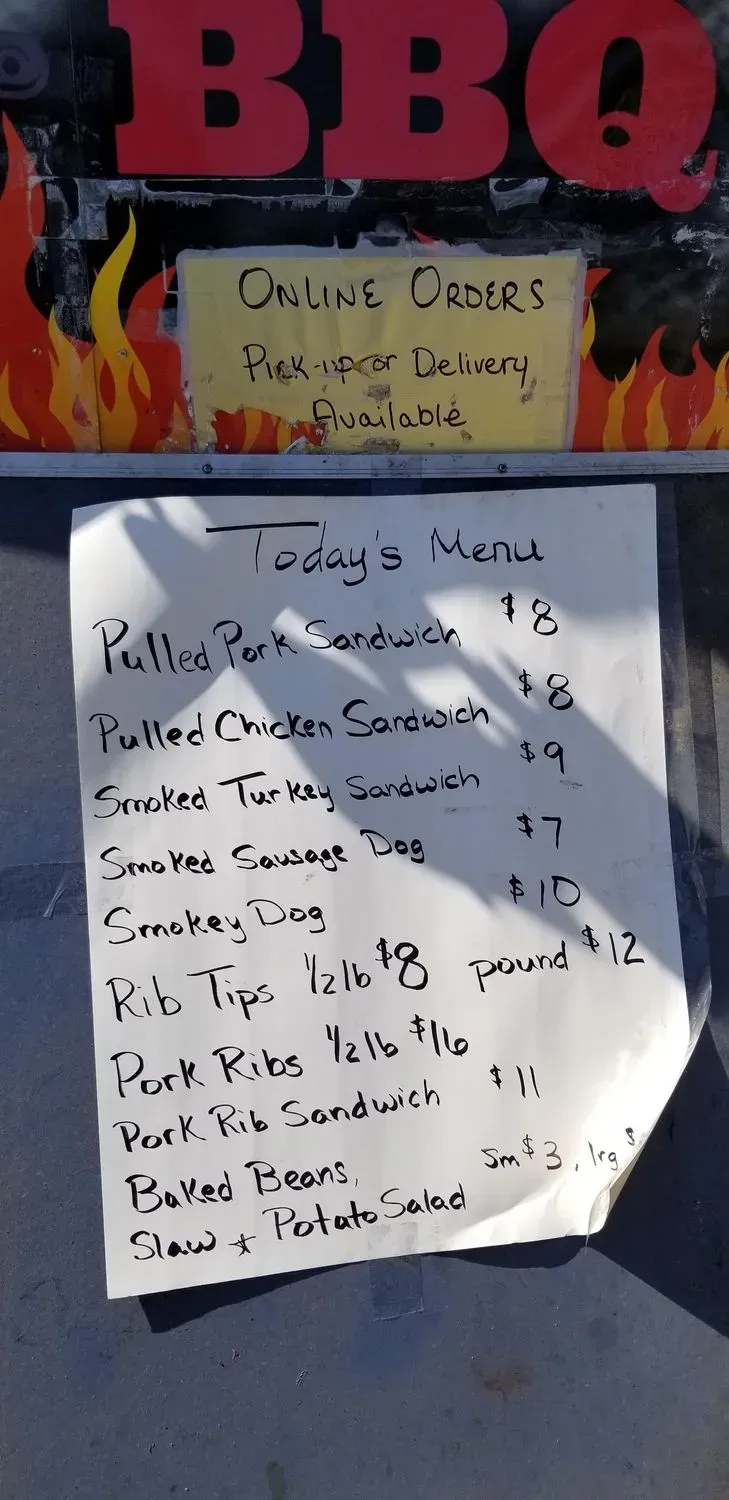 BBQ
ONLINE ORDERS
Pick-up or Delivery
Available
Today's Menu
Pulled Pork Sandwich $8
Pulled Chicken Sandwich $8
Smoked Turkey Sandwich $9
Smoked Sausage Dog $7
Smokey Dog $10
Rib Tips 1/2 lb $8 pound $12
Pork Ribs 1/2 lb $16
Pork Rib Sandwich $11
Baked Beans, sm $3, lrg
Slaw & Potato Salad